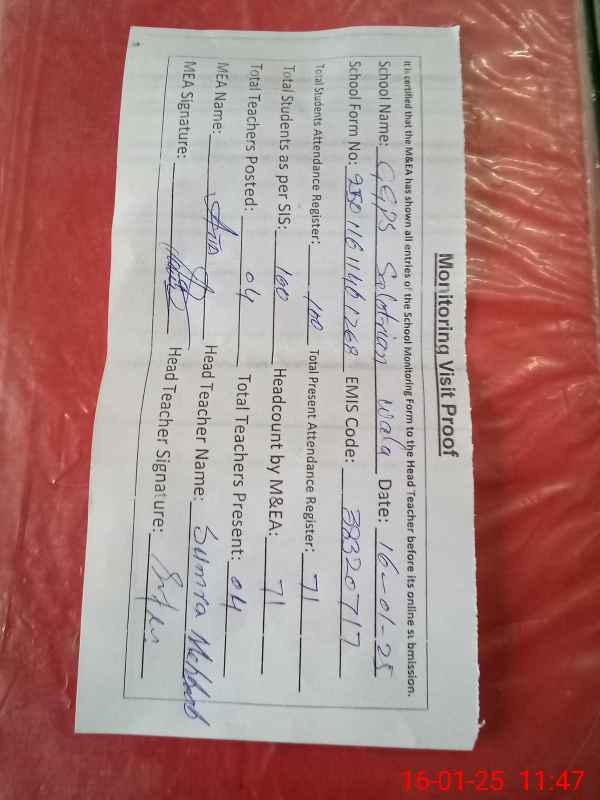 Monitoring Visit Proof
It is certified that the M&EA has shown all entries of the School Monitoring Form to the Head Teacher before its online submission.
School Name: GGPS Solatrian wala Date: 16-01-25
School Form No: EMIS Code: 38320717
Total Students Attendance Register: 100 Total Present Attendance Register: 71
Total Students as per SIS: 100 Headcount by M&EA: 71
Total Teachers Posted: 04 Total Teachers Present: 04
MEA Name: Head Teacher Name: Sumra Mehboob
MEA Signature: Head Teacher Signature:
16-01-25 11:47